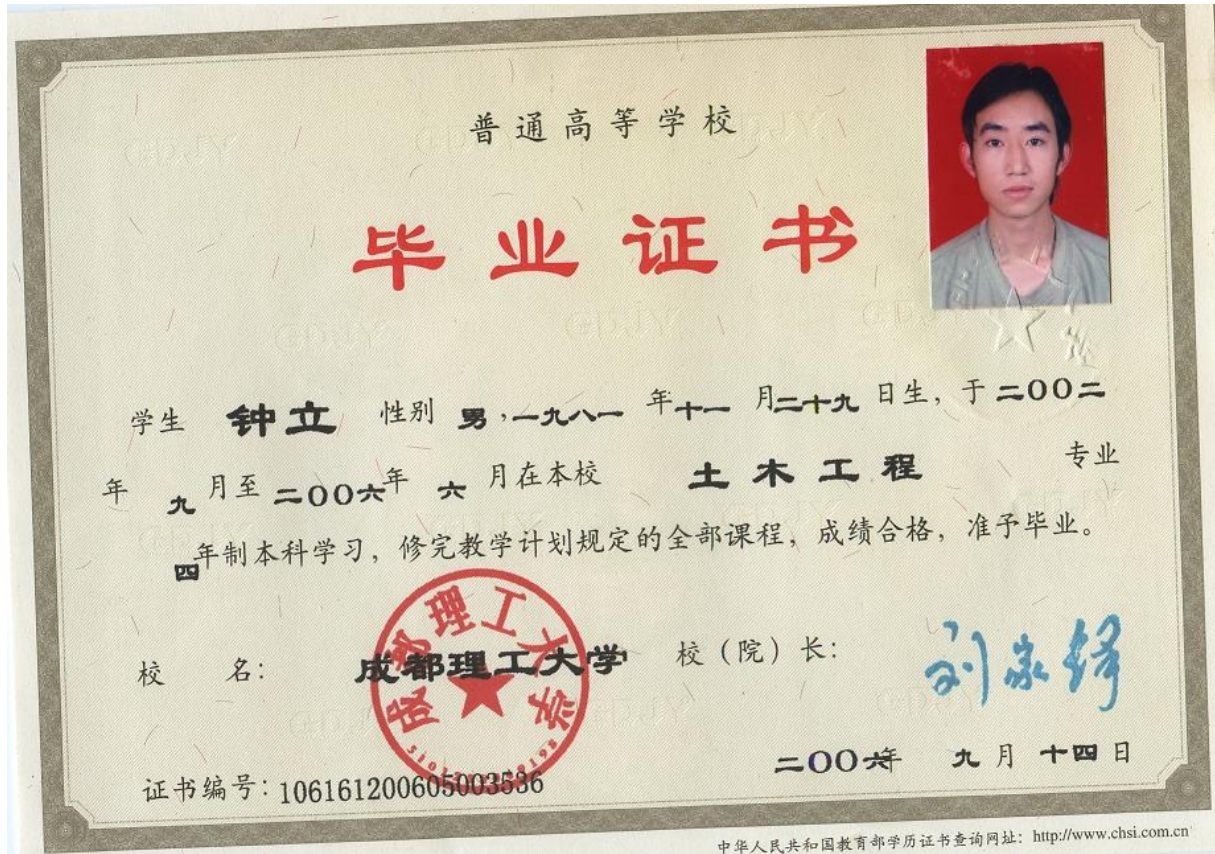 普通高等学校
毕业证书
学生 钟立 性别 男，一九八一 年十一 月二十九 日生，于 二〇〇二
年 九 月至 二〇〇六年 六 月在本校 土木工程 专业
四年制本科学习，修完教学计划规定的全部课程，成绩合格，准予毕业。
校 名： 成都理工大学 校（院）长： 刘家铎
成都理工大学
二〇〇六年 九 月 十四 日
证书编号：106161200605003536
中华人民共和国教育部学历证书查询网址：http://www.chsi.com.cn